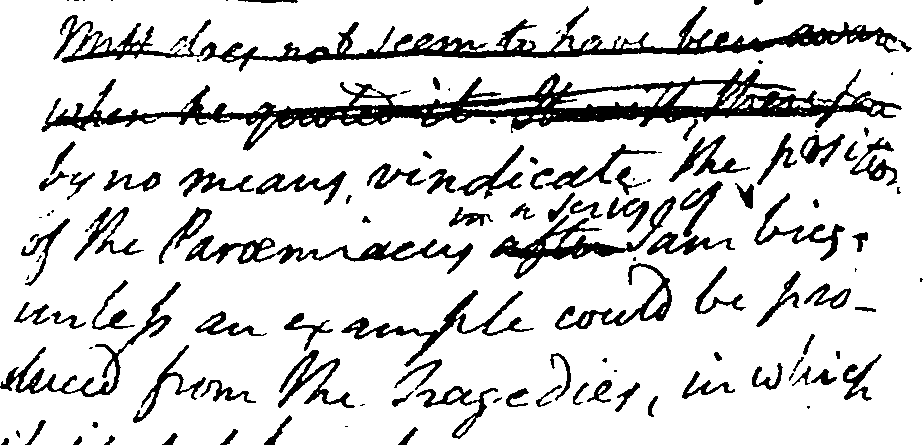 does not seem to have been aware
when he quoted it. It will, therefore
by no means, vindicate the position
of the Parœmiacus after Iambics,
in a series of
unless an example could be pro-
duced from the Tragedies, in which